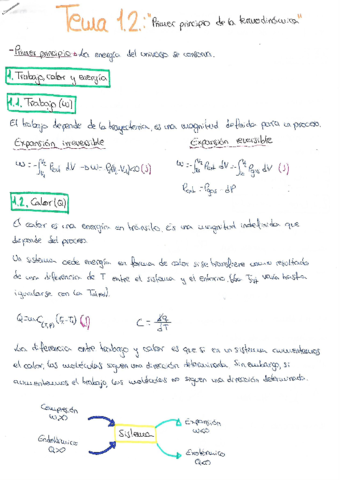 Tema 1.2.: "Primer principio de la termodinámica"
- Primer principio = La energía del universo se conserva.
1. Trabajo, calor y energía
1.1. Trabajo (W)
El trabajo depende de la trayectoria, es una magnitud definida para un proceso.
Expansión irreversible
Expansión reversible
(J)
(J)
1.2. Calor (Q)
El calor es una energía en tránsito. Es una magnitud indefinida que
depende del proceso.
Un sistema cede energía en forma de calor si se transfiere como resultado
de una diferencia de T entre el sistema y el entorno
igualarse con la
(J)
La diferencia entre trabajo y calor es que si en un sistema aumentamos
el calor, las moléculas siguen una dirección determinada. Sin embargo, si
aumentamos el trabajo, las moléculas no siguen una dirección determinada.
Compresión
W>0
Expansión
W<0
Sistema
Endotérmico
Q>0
Exotérmico
Q<0